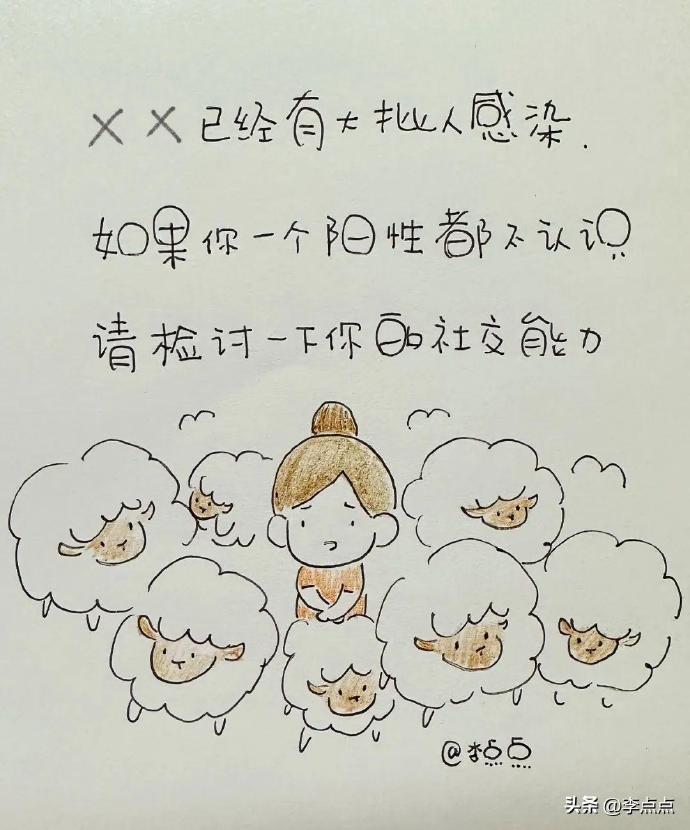 ××已经有大批人感染.
如果你一个阳性都不认识
请检讨一下你的社交能力
@李点点
头条 @李点点